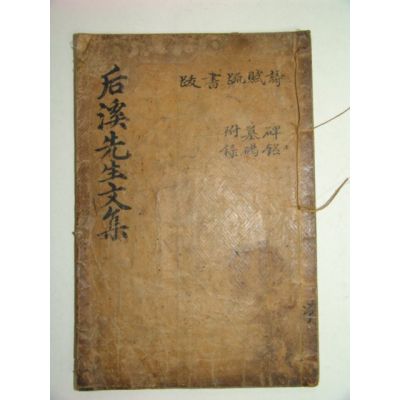 后溪先生文集
詩賦疏書跋
碑銘
墓碣
附錄